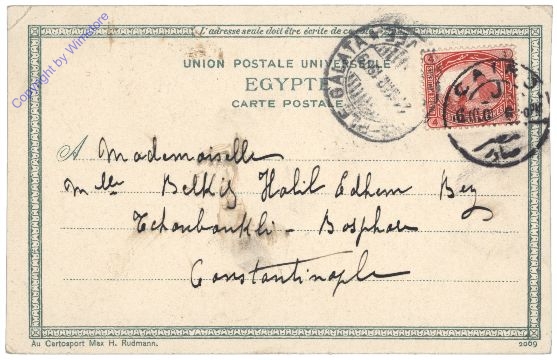 L'adresse seule doit être écrite de ce
UNION POSTALE UNIVERSELLE
EGYPTE
CARTE POSTALE
GALATA
CAIRO
A Mademoiselle
Mlle Belkis Halil Edhem Bey
Tchouboukli - Bosphore
Constantinople
Au Cartosport Max H. Rudmann.
2009
Copyright by Winstore